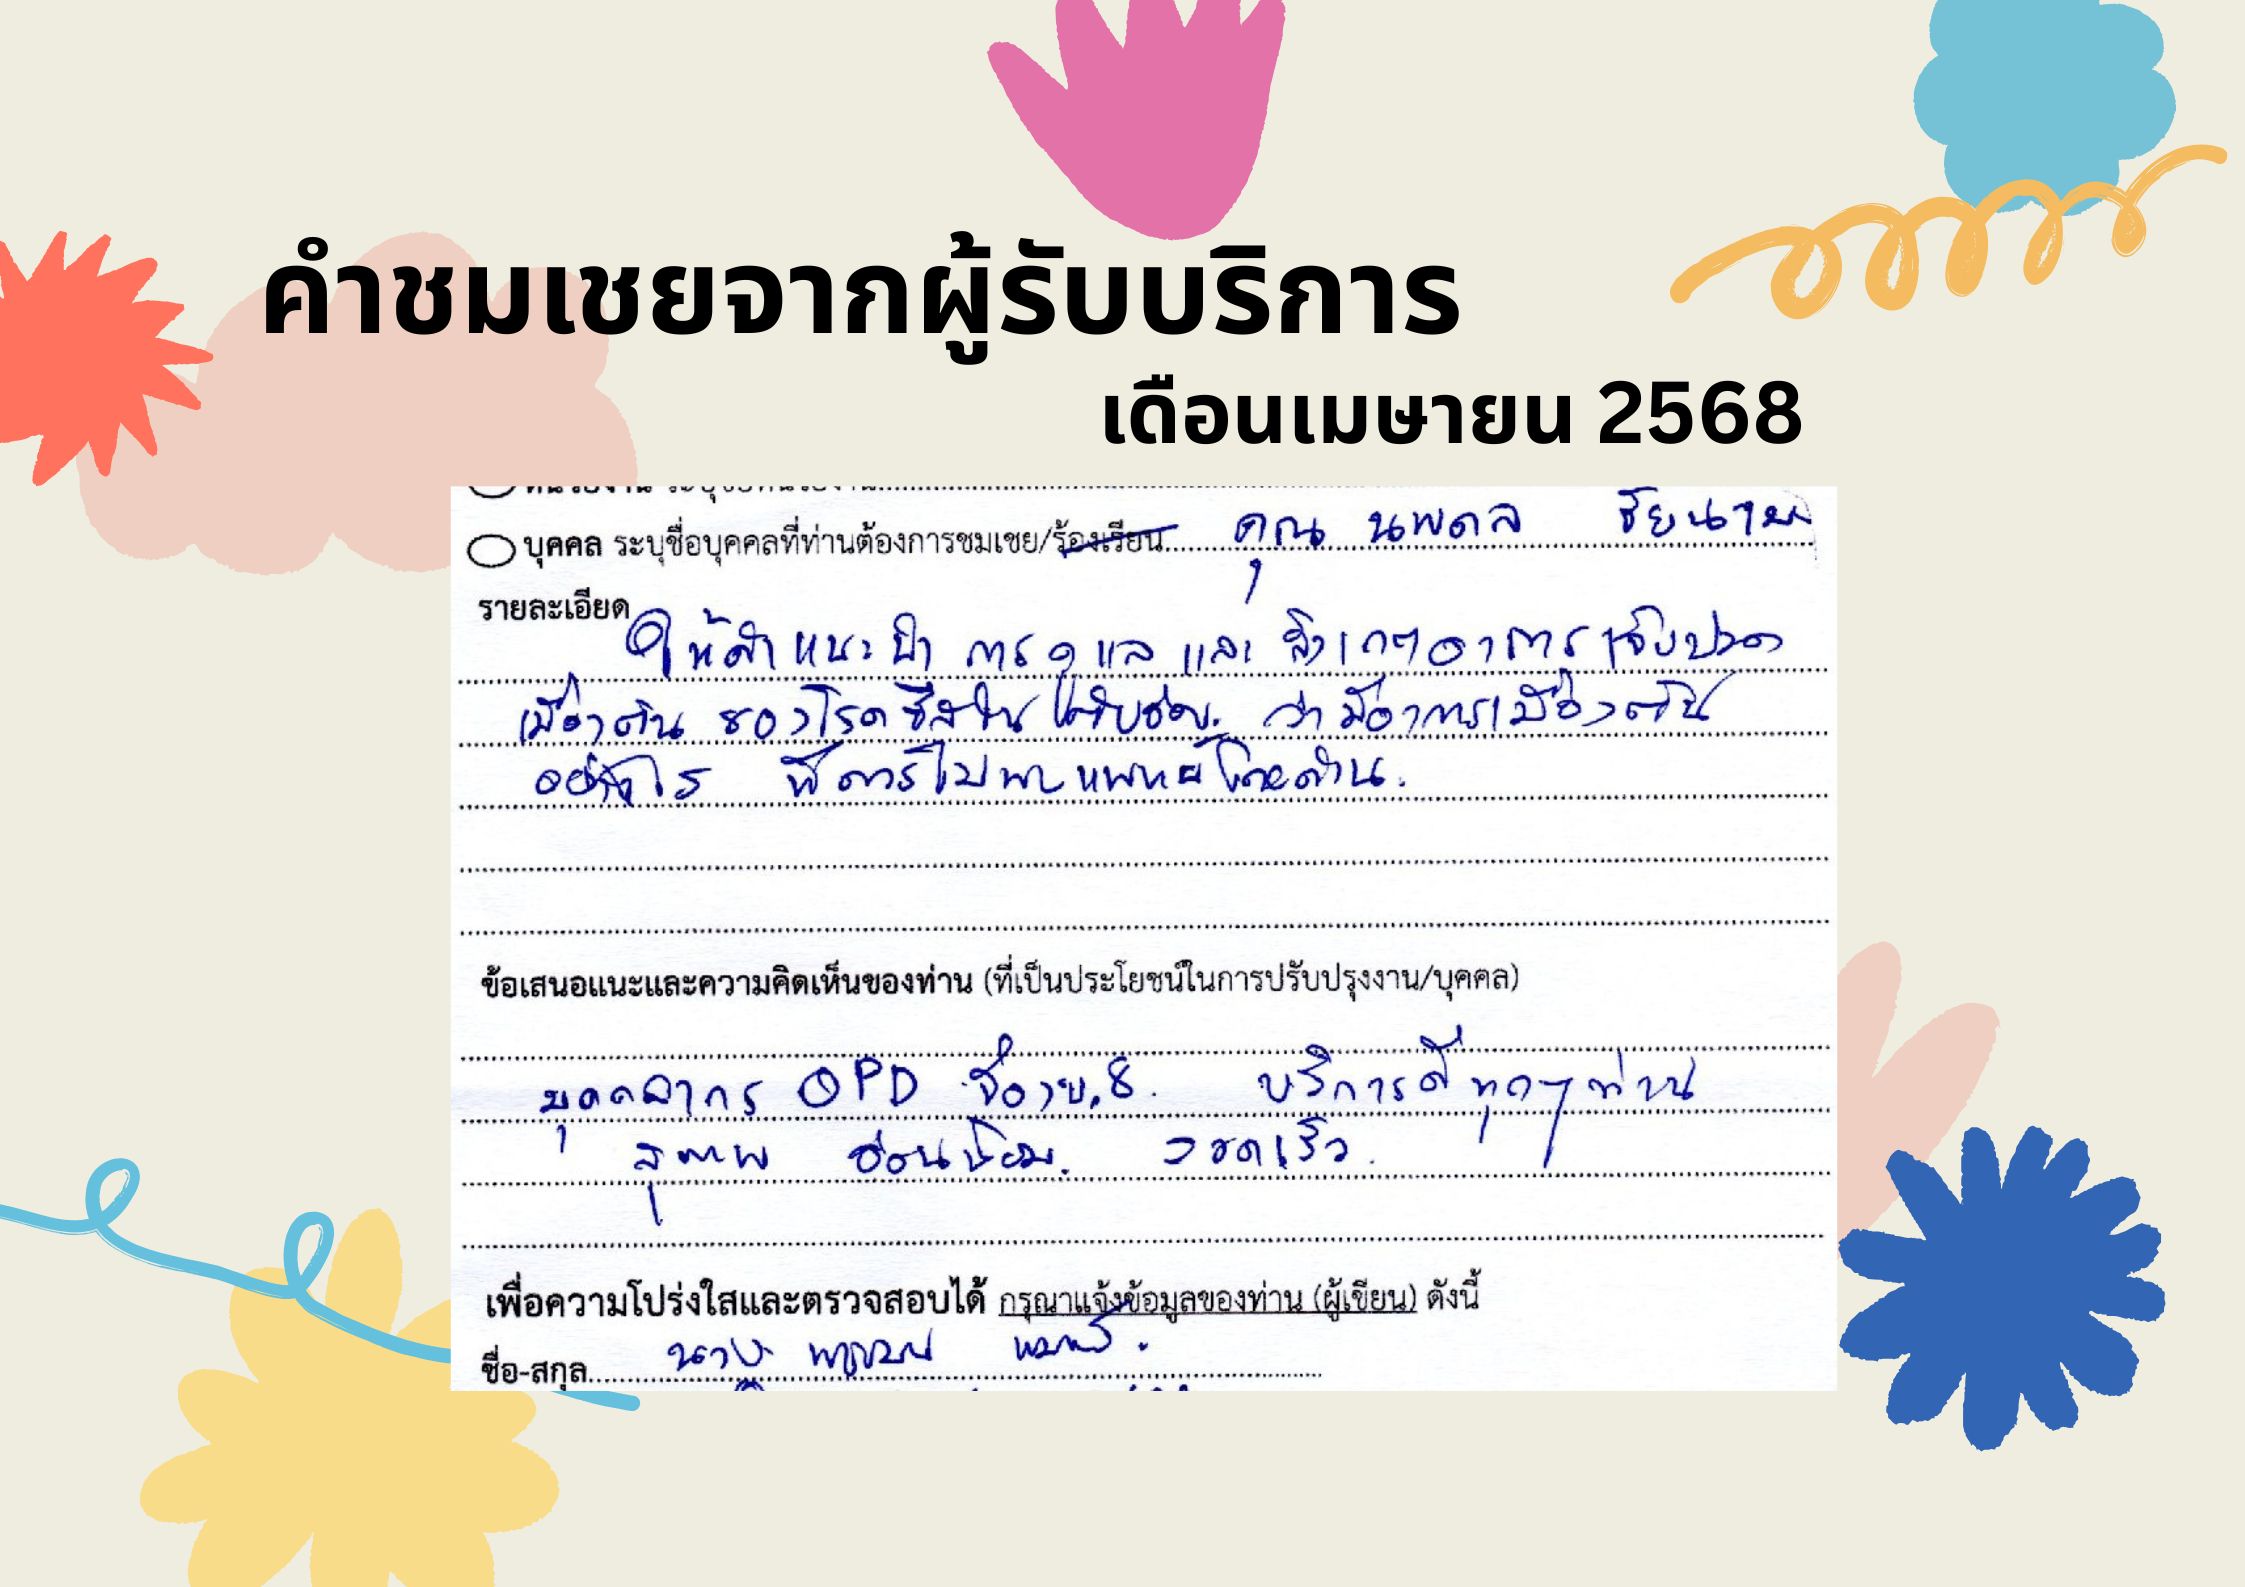 คำชมเชยจากผู้รับบริการ
เดือนเมษายน 2568
บุคคล ระบุชื่อบุคคลที่ท่านต้องการชมเชย/ร้องเรียน คุณ นพดล
รายละเอียด
ให้คำแนะนำ การดูแล และ สังเกตอาการเจ็บปวด
เบื้องต้น ของโรค ว่ามีอาการเบื้องต้น
อย่างไร ที่ควรไปพบแพทย์โดยด่วน.
ข้อเสนอแนะและความคิดเห็นของท่าน (ที่เป็นประโยชน์ในการปรับปรุงงาน/บุคคล)
บุคคลากร OPD บริการดีทุกๆท่าน
สุภาพ อ่อนน้อม. รวดเร็ว.
เพื่อความโปร่งใสและตรวจสอบได้ กรุณาแจ้งข้อมูลของท่าน (ผู้เขียน) ดังนี้
ชื่อ-สกุล นาง